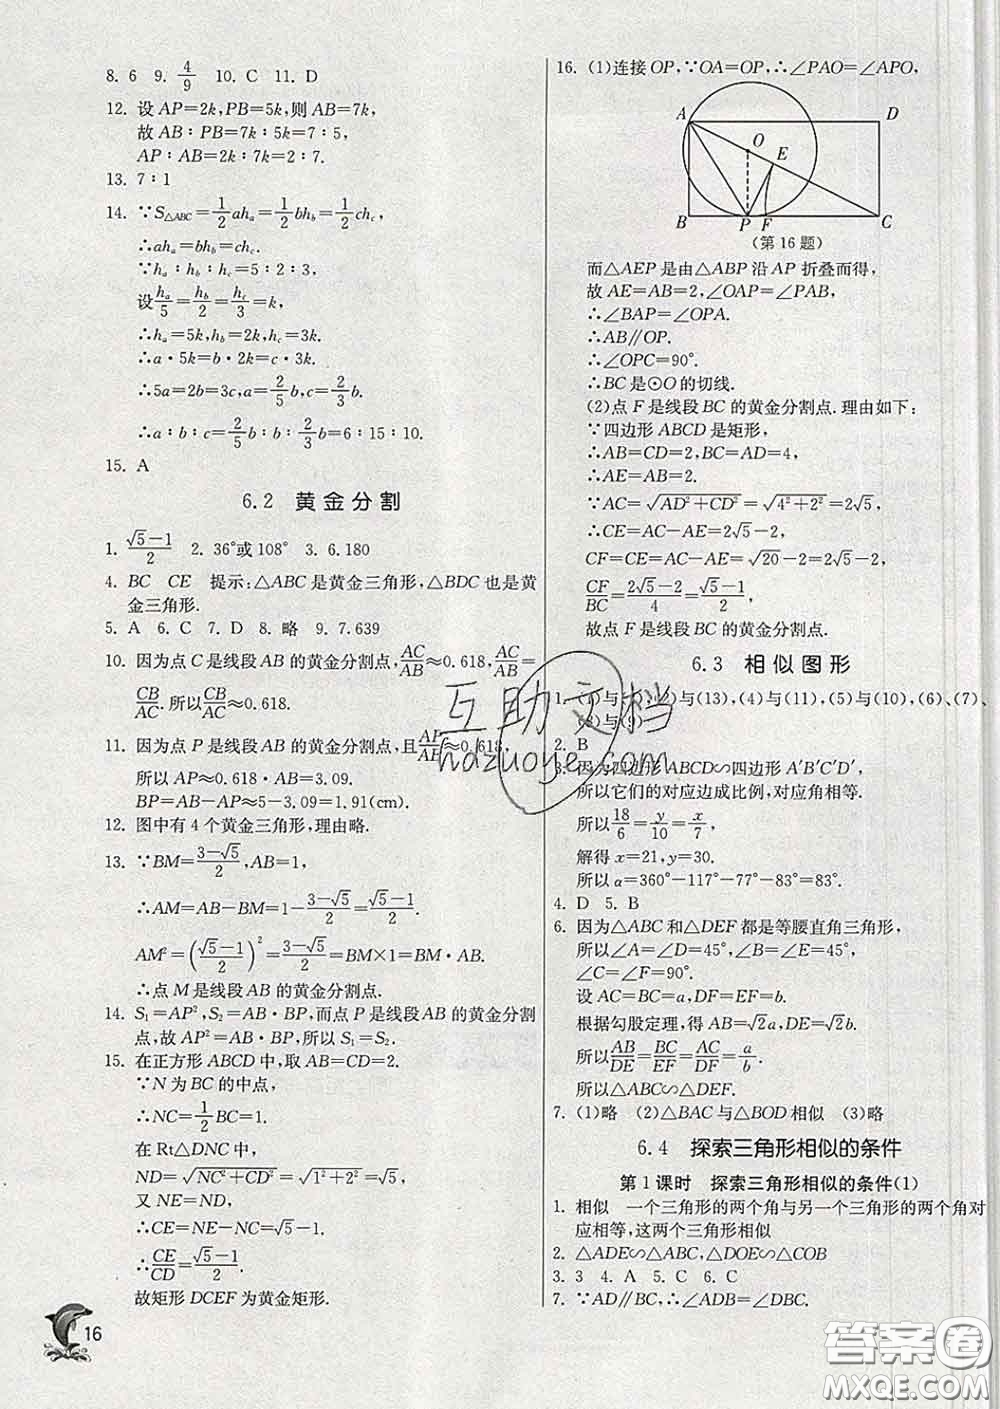 8. 6　9. 4/9　10. C　11. D
12. 设 AP=2k,PB=5k,则 AB=7k,
故 AB∶PB=7k∶5k=7∶5,
AP∶AB=2k∶7k=2∶7.
13. 7∶1
14. ∵S△ABC=1/2 ahₐ=1/2 bh_b=1/2 ch_c,
∴ahₐ=bh_b=ch_c.
∵hₐ∶h_b∶h_c=5∶2∶3,
设hₐ/5=h_b/2=h_c/3=k,
∴hₐ=5k,h_b=2k,h_c=3k.
∴a·5k=b·2k=c·3k.
∴5a=2b=3c,a=2/5 b,c=2/3 b.
∴a∶b∶c=2/5 b∶b∶2/3 b=6∶15∶10.
15. A
6.2 黄金分割
1. (√5-1)/2　2. 36°或108°　3. 6.180
4. BC　CE　提示:△ABC 是黄金三角形,△BDC 也是黄
金三角形.
5. A　6. C　7. D　8. 略　9. 7.639
10. 因为点 C 是线段 AB 的黄金分割点,AC/AB≈0.618,AC/AB=
CB/AC.所以CB/AC≈0.618.
11. 因为点 P 是线段 AB 的黄金分割点,且AP/AB≈0.618,
所以 AP≈0.618·AB=3.09.
BP=AB-AP≈5-3.09=1.91(cm).
12. 图中有 4 个黄金三角形,理由略.
13. ∵BM=(3-√5)/2,AB=1,
∴AM=AB-BM=1-(3-√5)/2=(√5-1)/2.
AM²=((√5-1)/2)²=(3-√5)/2=BM×1=BM·AB.
∴点 M 是线段 AB 的黄金分割点.
14. S₁=AP²,S₂=AB·BP,而点 P 是线段 AB 的黄金分割
点,故 AP²=AB·BP,所以 S₁=S₂.
15. 在正方形 ABCD 中,取 AB=CD=2.
∵N 为 BC 的中点,
∴NC=1/2 BC=1.
在 Rt△DNC 中,
ND=√(NC²+CD²)=√(1²+2²)=√5.
又 NE=ND,
∴CE=NE-NC=√5-1.
∴CE/CD=(√5-1)/2.
故矩形 DCEF 为黄金矩形.
16
16. (1)连接 OP,∵OA=OP,∴∠PAO=∠APO,
A
D
O
E
B
P
F
C
(第 16 题)
而△AEP 是由△ABP 沿 AP 折叠而得,
故 AE=AB=2,∠OAP=∠PAB,
∴∠BAP=∠OPA.
∴AB∥OP.
∴∠OPC=90°.
∴BC 是⊙O 的切线.
(2)点 F 是线段 BC 的黄金分割点.理由如下:
∵四边形 ABCD 是矩形,
∴AB=CD=2,BC=AD=4,
∴AE=AB=2.
∵AC=√(AD²+CD²)=√(4²+2²)=2√5,
∴CE=AC-AE=2√5-2,
CF=CE=AC-AE=√20-2=2√5-2,
CF/BC=(2√5-2)/4=(√5-1)/2,
故点 F 是线段 BC 的黄金分割点.
6.3 相似图形
1. (1)与 与(13),(4)与(11),(5)与(10),(6)、(7)、
(8)与(9)
2. B
3. 因为四边形 ABCD∽四边形 A′B′C′D′,
所以它们的对应边成比例,对应角相等.
所以18/6=y/10=x/7,
解得 x=21,y=30.
所以 α=360°-117°-77°-83°=83°.
4. D　5. B
6. 因为△ABC 和△DEF 都是等腰直角三角形,
所以∠A=∠D=45°,∠B=∠E=45°,
∠C=∠F=90°.
设 AC=BC=a,DF=EF=b.
根据勾股定理,得 AB=√2a,DE=√2b.
所以AB/DE=BC/EF=AC/DF=a/b.
所以△ABC∽△DEF.
7. (1)略　(2)△BAC 与△BOD 相似　(3)略
6.4 探索三角形相似的条件
第 1 课时　探索三角形相似的条件(1)
1. 相似　一个三角形的两个角与另一个三角形的两个角对
应相等,这两个三角形相似
2. △ADE∽△ABC,△DOE∽△COB
3. 3　4. A　5. C　6. C
7. ∵AD∥BC,∴∠ADB=∠DBC.
互助文档
hdzuoye.com
答案圈
MXQE.COM